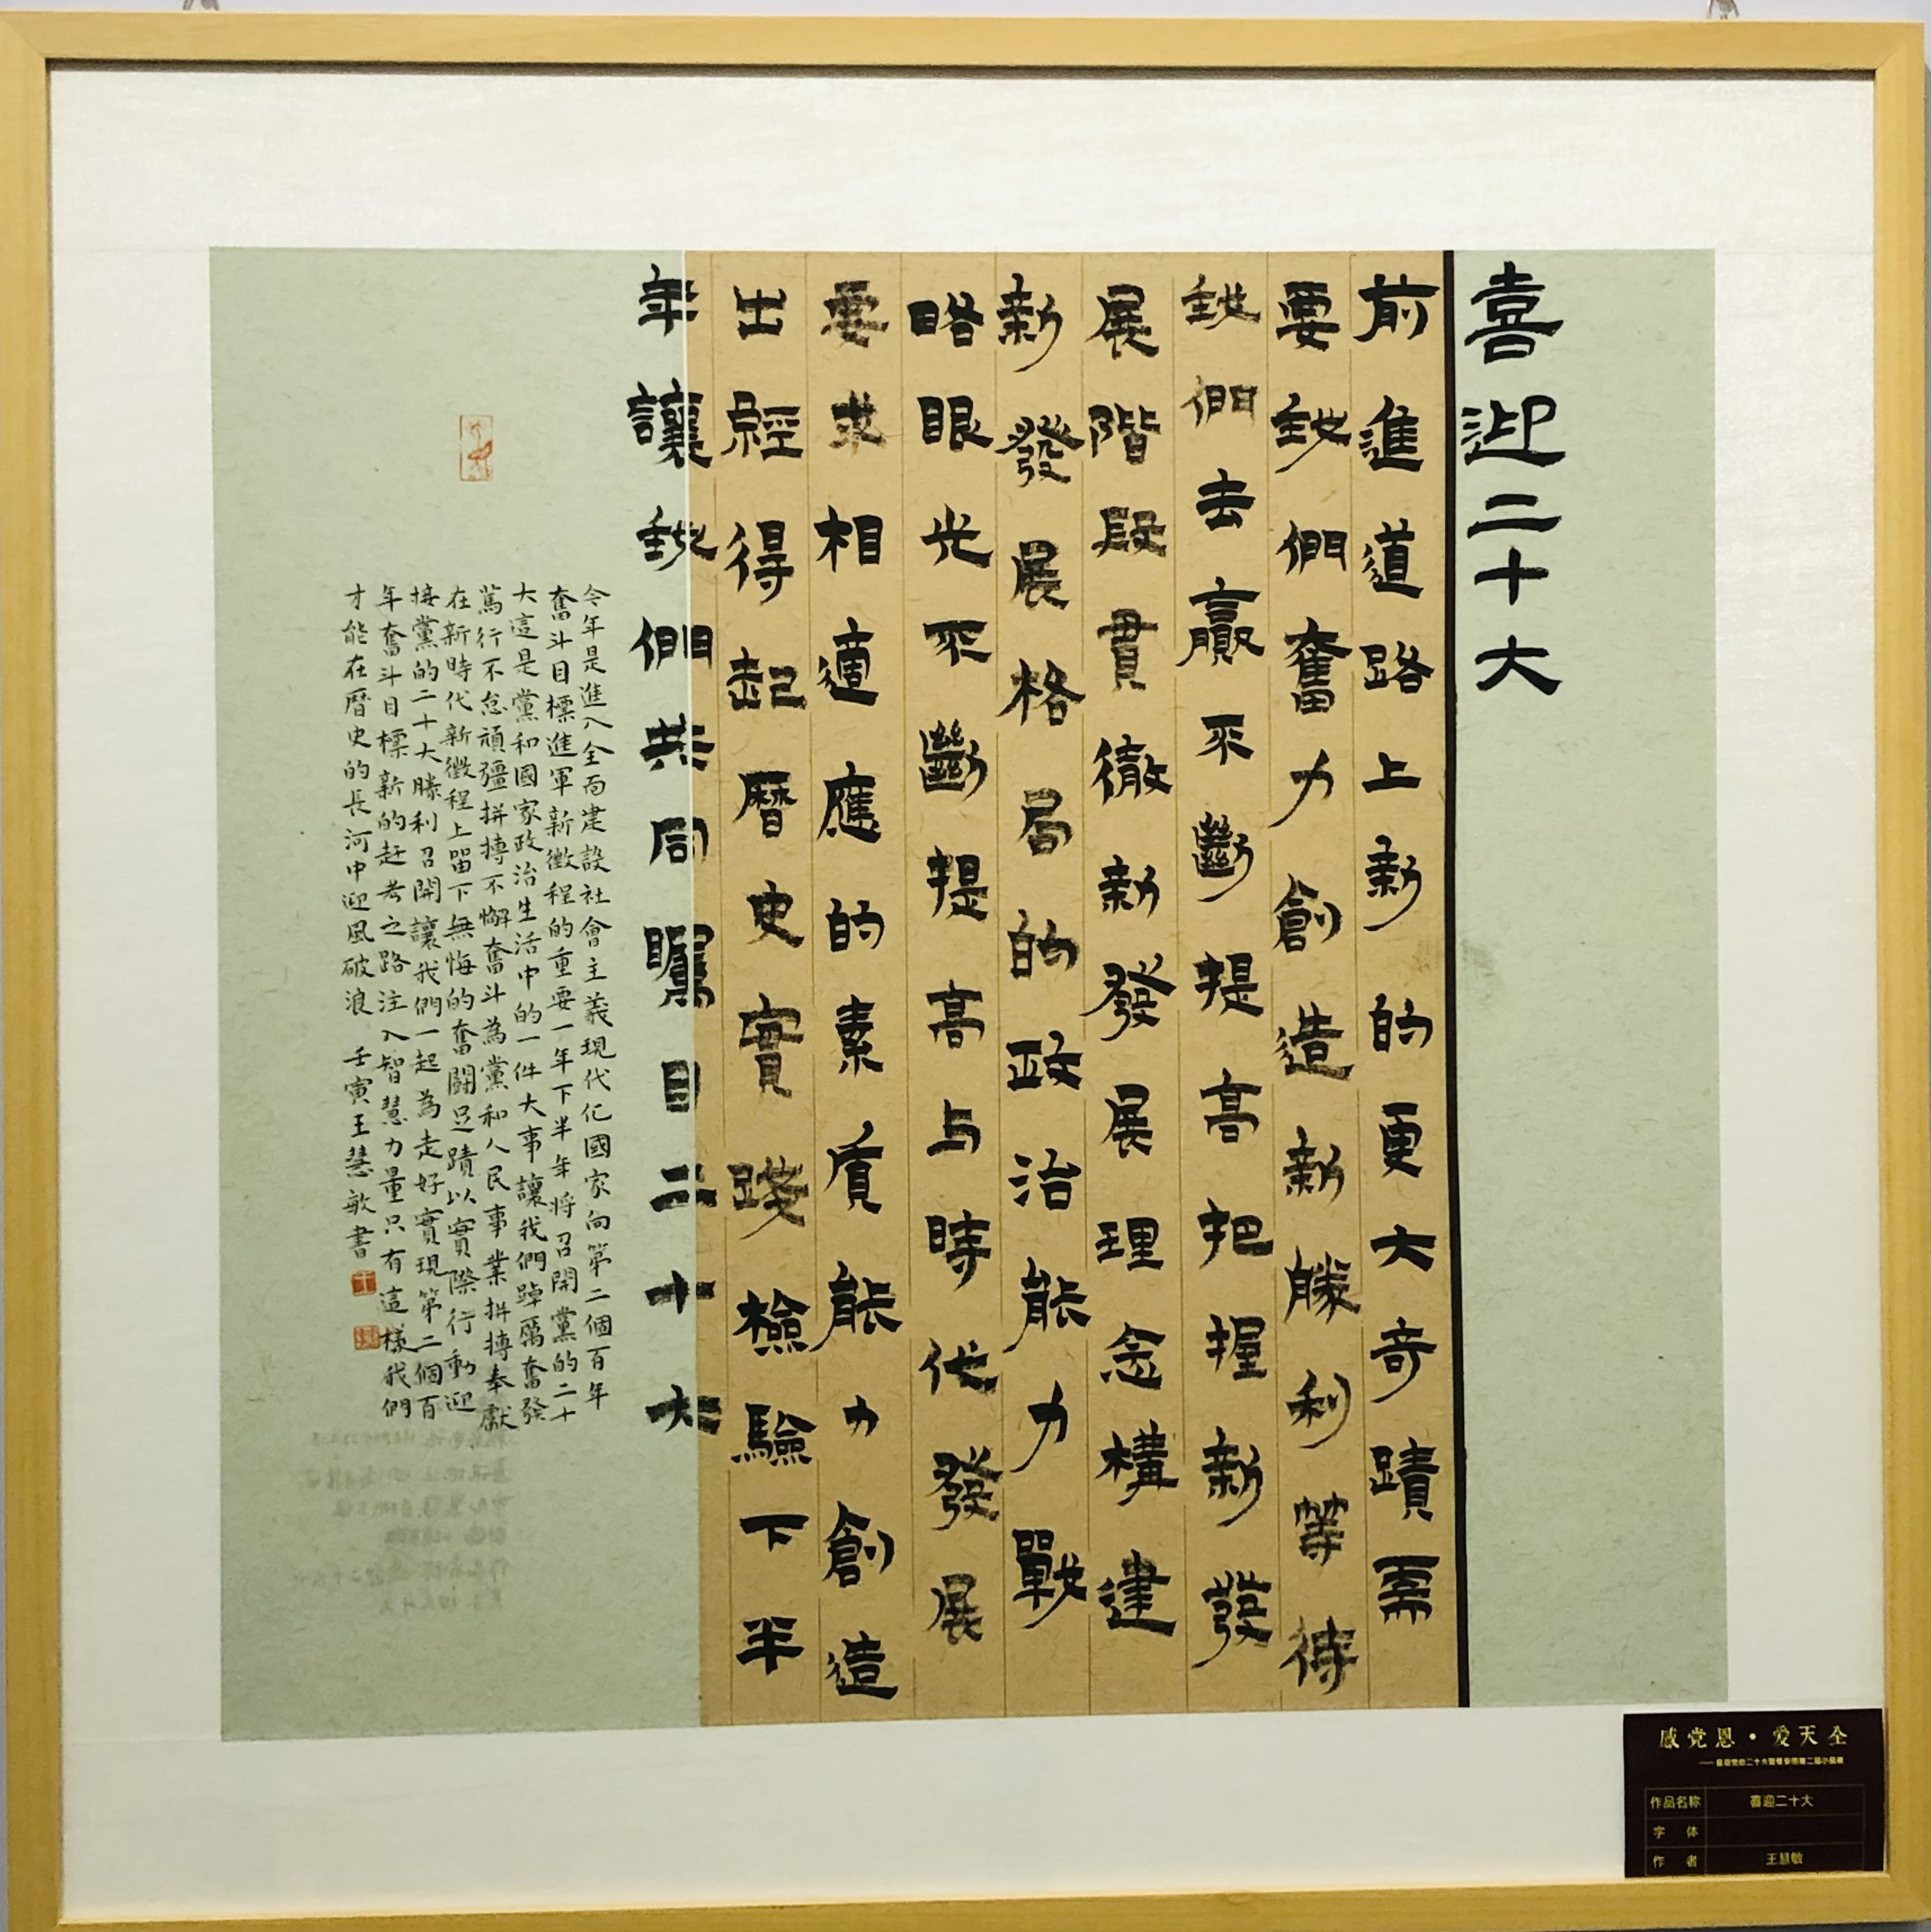 喜迎二十大
前進道路上新的更大奇蹟需
要我們奮力創造新勝利等待
我們去贏不斷提高把握新發
展階段貫徹新發展理念構建
新發展格局的政治能力戰
略眼光不斷提高与時代發展
要求相適應的素質能力創造
出經得起曆史實踐檢驗下半
年讓我們共同矚目二十大
今年是進入全面建設社會主義現代化國家向第二個百年
奮斗目標進軍新徵程的重要一年下半年将召開黨的二十
大這是黨和國家政治生活中的一件大事讓我們踔厲奮發
篤行不怠頑彊拼搏不懈奮斗為黨和人民事業拼搏奉獻
在新時代新徵程上留下無悔的奮鬭足蹟以實際行動迎
接黨的二十大勝利召開讓我們一起為走好實現第二個百
年奮斗目標新的赶考之路注入智慧力量只有這樣我們
才能在曆史的長河中迎風破浪 壬寅王慧敏書
感党恩·爱天全
作品名称 喜迎二十大
字体
作者 王慧敏